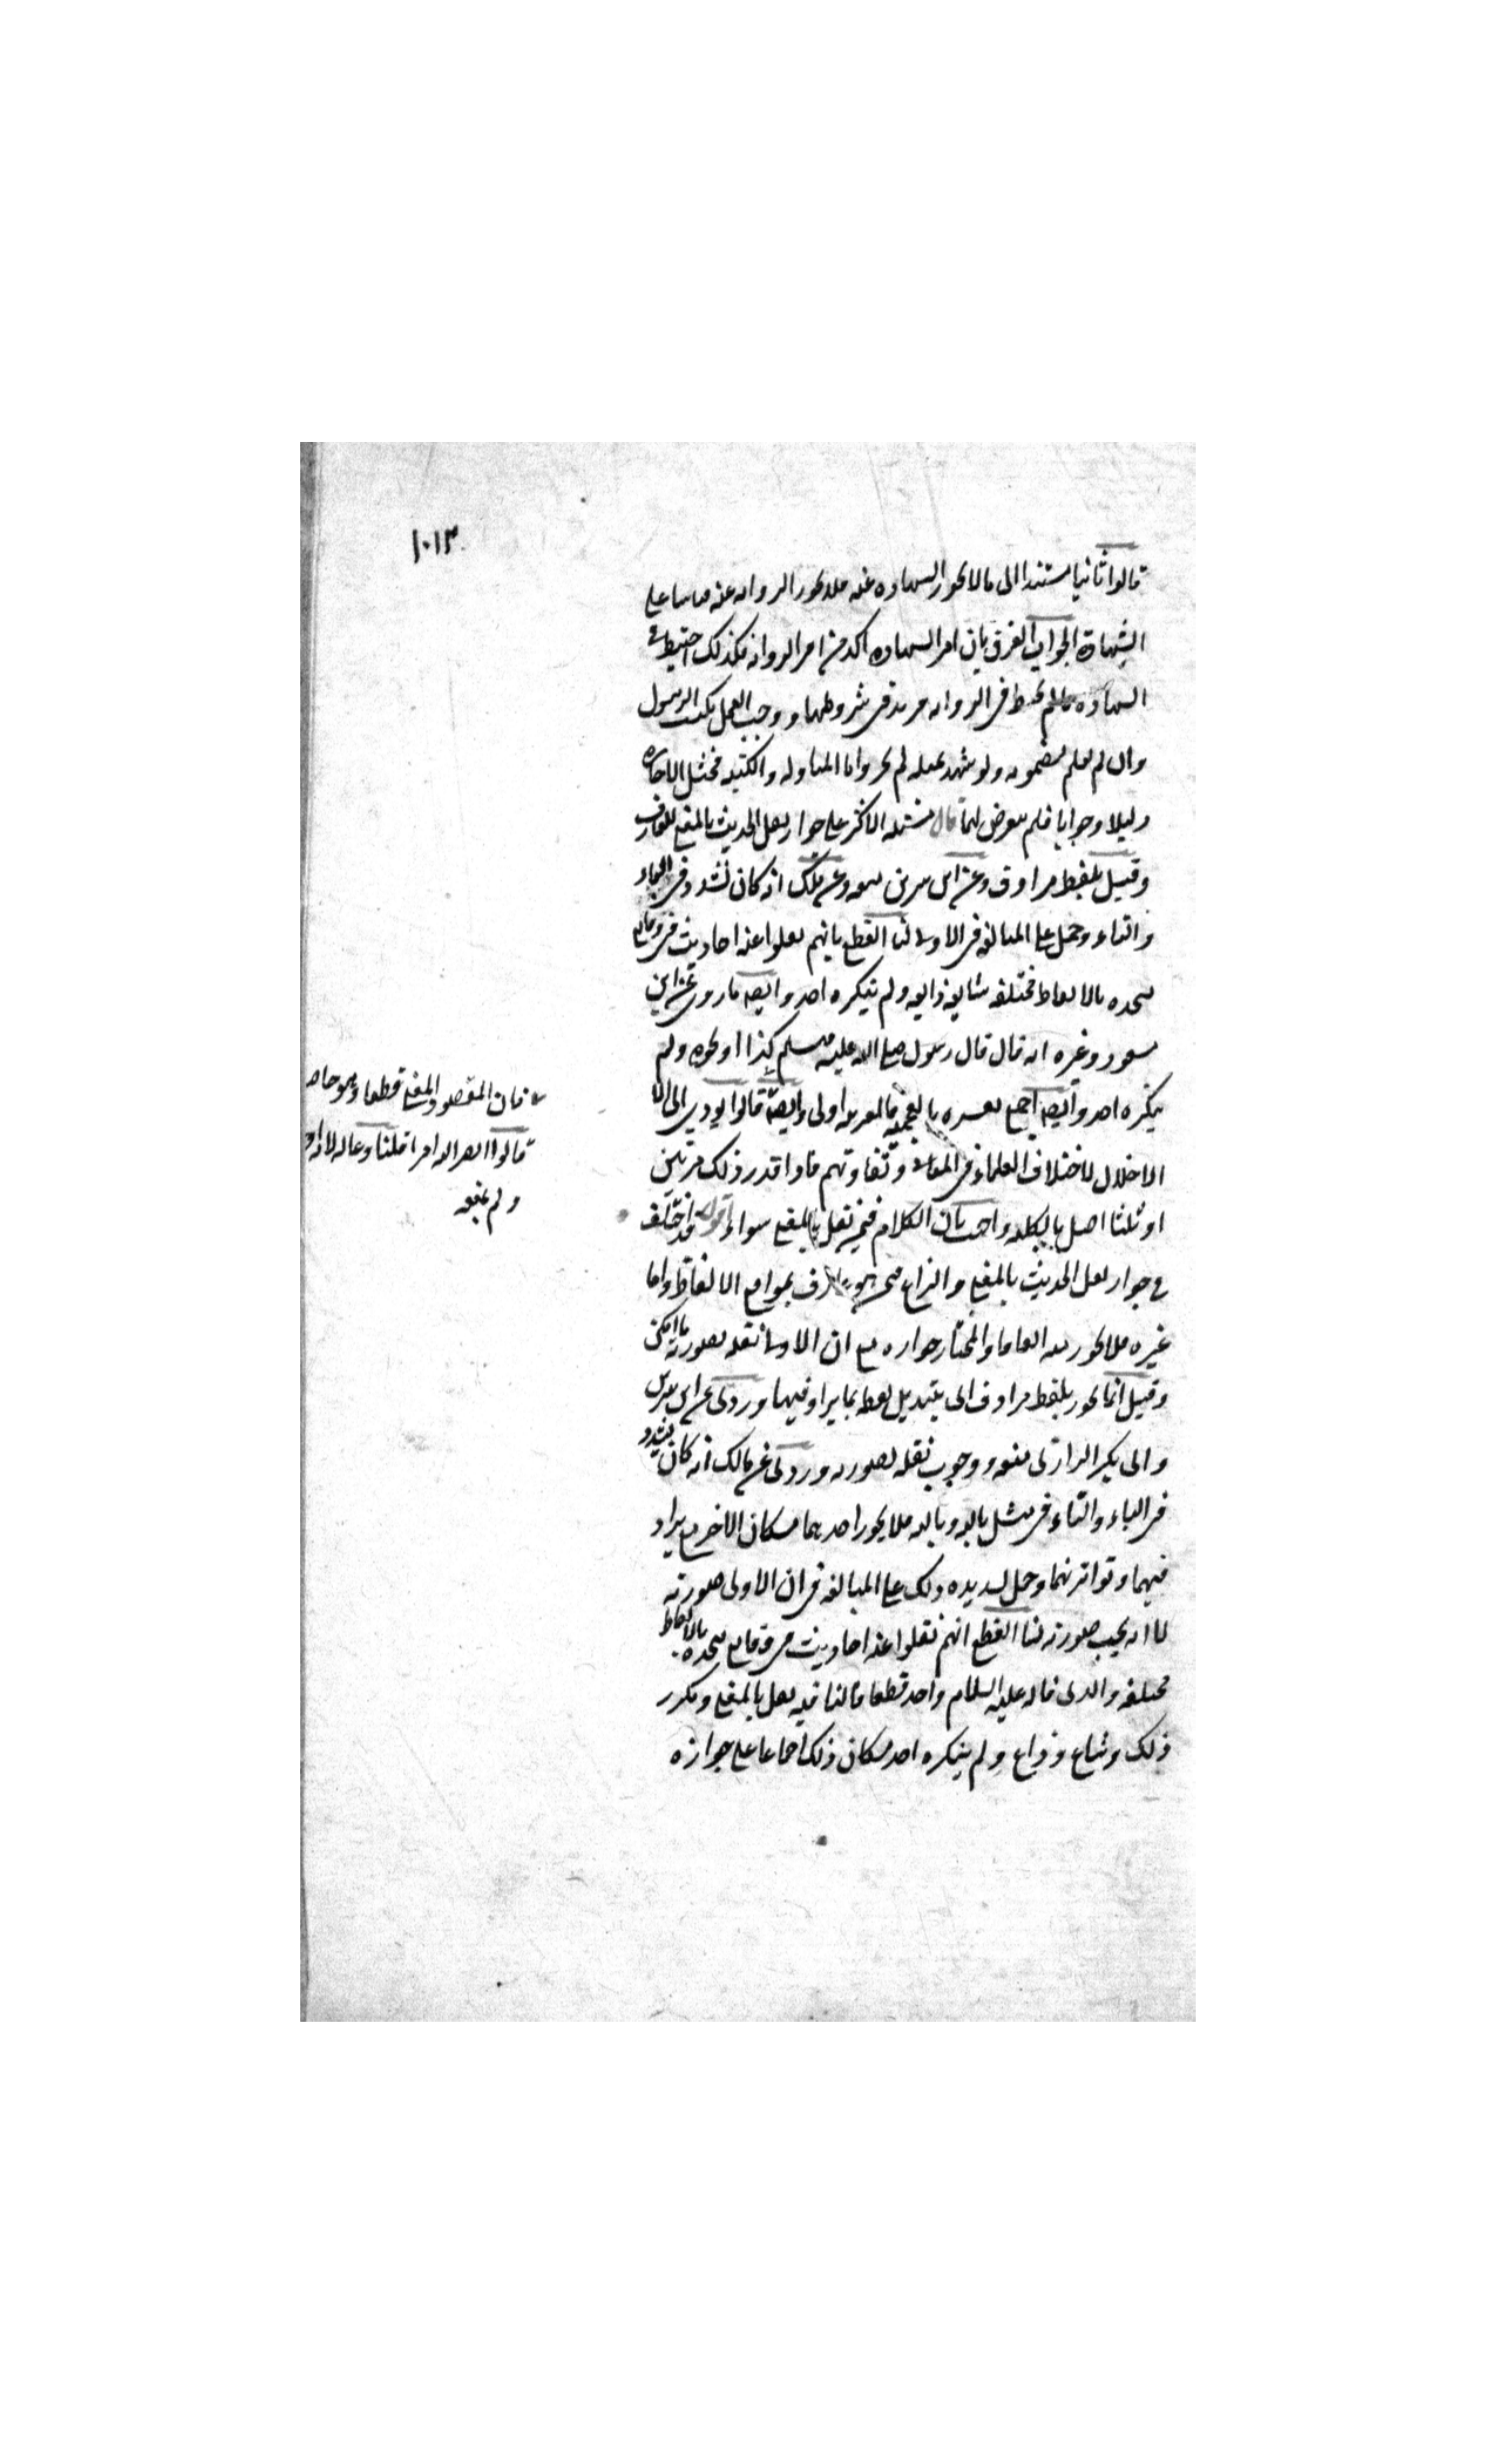 ١٠١٣
قالوا ثانيا مستندا الى ما لا يجوز الشهادة عنه فلا يجوز الرواية عنه قياسا على
الشهادة الجواب الفرق بان امر الشهادة اكد من امر الرواية فكذلك احتيط في
الشهادة ما لم يحتط في الرواية من يد في شروطها ووجب العمل بكتب الرسول
وان لم يعلم مضمونه ولو شهد عليه لم يجز واما المناولة والكتبة فمثل الاجازة
دليلا وجوابا فلم يتعرض لهما قال مسئلة الاكثر على جواز نقل الحديث بالمعنى للعارف
وقيل بلفظ مرادف وعن ابن سيرين منعه وعن ملك انه كان يشدد في الباء
والتاء وحمل على المبالغة في الاولى لنا القطع بانهم نقلوا عنه احاديث في وقايع
متحدة بالالفاظ مختلفة شايعة ذايعة ولم ينكره احد وايضا ما روى عن ابن
مسعود وغيره انه قال قال رسول صلى الله عليه وسلم كذا او نحوه ولم
ينكره احد وايضا اجمع تفسيره بالعجمية فالعربية اولى وايضا قالوا يودي الى
فان المقصود المعنى قطعا وهو حاصل
قالوا نضر الله امرا قلنا دعا له لانه الا
ولم يمنعه
الاخلال لاختلاف العلماء في المعاني وتفاوتهم فاذا قدر ذلك مرتين
او ثلثا اختل بالكلية واجيب بان الكلام فيمن نقل بالمعنى سواء اقول قد اختلف
في جواز نقل الحديث بالمعنى والنزاع فيمن هو عارف بمواقع الالفاظ واما
غيره فلا يجوز منه اتفاقا والمختار جوازه مع ان الاولى نقله بصورته ما امكن
وقيل انما يجوز بلفظ مرادف اى بتبديل لفظ بما يرادفها وروى عن ابن سيرين
وابى بكر الرازى منعه ووجوب نقله بصورته وروى عن مالك انه كان يشدد
في الباء والتاء في مثل بالله وتالله فلا يجوز احدهما مكان الاخر مع ترادفهما
وتواترهما وحمل تشديده ذلك على المبالغة في ان الاولى صورته
لا انه يجب صورته لنا القطع انهم نقلوا عنه احاديث في وقايع متحدة بالالفاظ
مختلفة والذى قاله عليه السلام واحد قطعا فالباقيه نقل بالمعنى وتكرر
ذلك وشاع وذاع ولم ينكره احد فكان ذلك اجماعا على جوازه